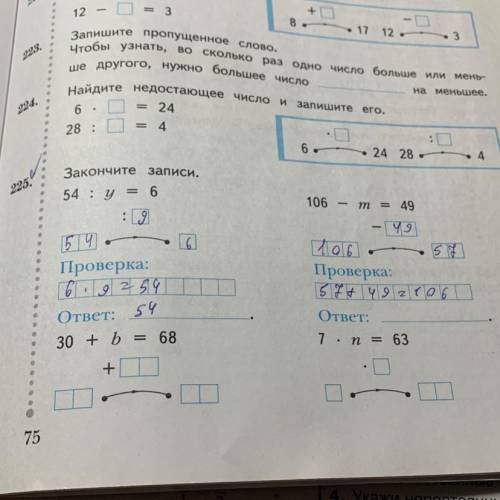 12 − □ = 3
+ □
8 17
− □
12 3
223.
Запишите пропущенное слово.
Чтобы узнать, во сколько раз одно число больше или мень-
ше другого, нужно большее число ____ на меньшее.
224.
Найдите недостающее число и запишите его.
6 · □ = 24
28 : □ = 4
· □
6 24
: □
28 4
225.
Закончите записи.
54 : y = 6
: 9
54 6
Проверка:
6 · 9 = 54
Ответ: 54.
106 − m = 49
− 49
106 57
Проверка:
57 + 49 = 106
Ответ: ____.
30 + b = 68
+ □□
□□ □□
7 · n = 63
· □
□ □□
75